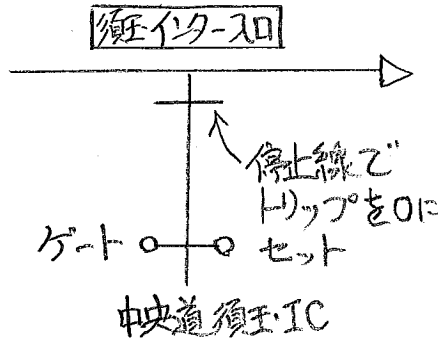 須玉インター入口
停止線で
トリップを0に
セット
ゲート
中央道須玉IC